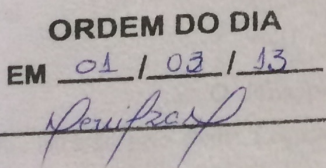 ORDEM DO DIA
EM 01 / 03 / 13